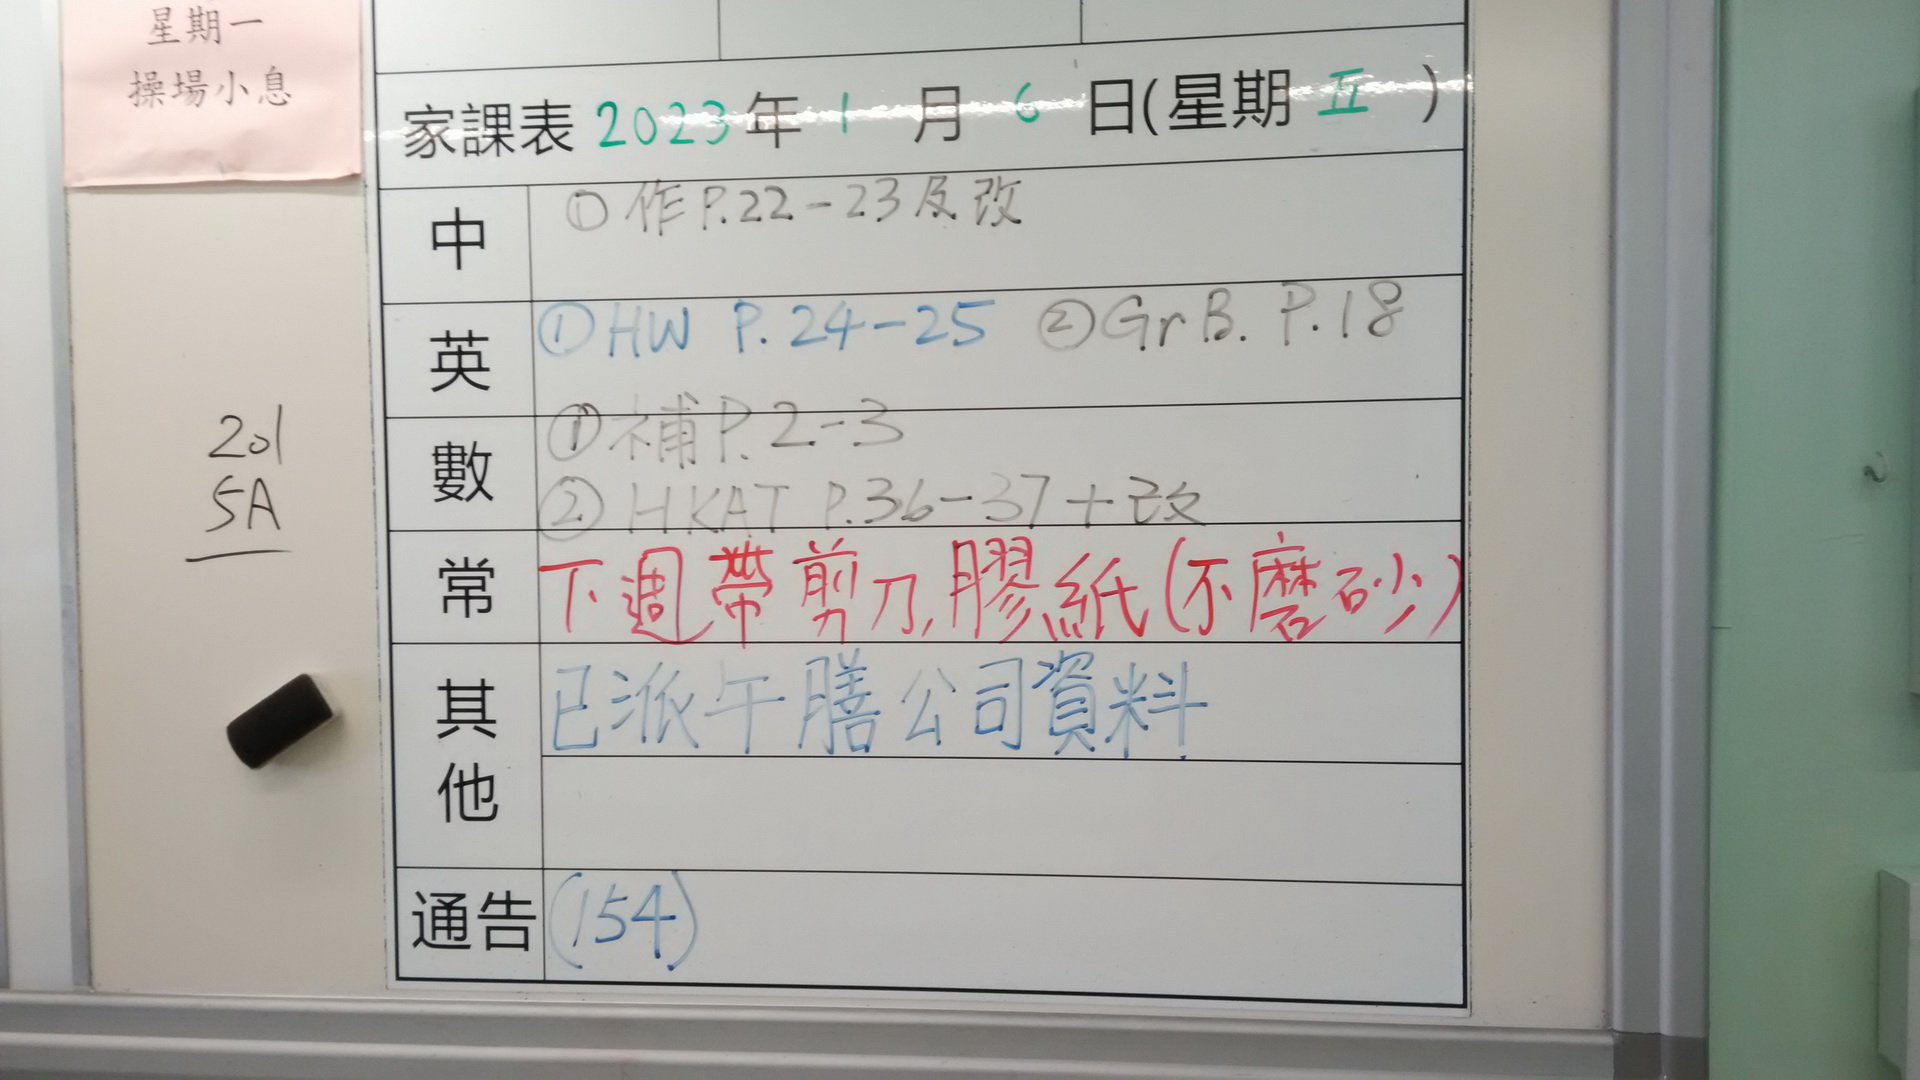 星期一
操場小息
家課表 2023年 1 月 6 日(星期 五 )
中 ①作P.22-23及改
英 ①HW P.24-25 ②GrB. P.18
數 ①補P.2-3
②HKAT P.36-37+改
常 下週帶剪刀,膠紙(不磨砂)
其他 已派午膳公司資料
通告 (154)
201
5A